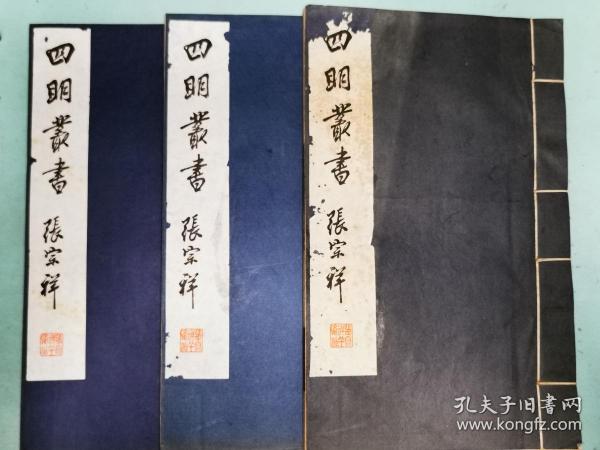 四明叢書
張宗祥
四明叢書
張宗祥
四明叢書
張宗祥
孔夫子旧書网
www.kongfz.com